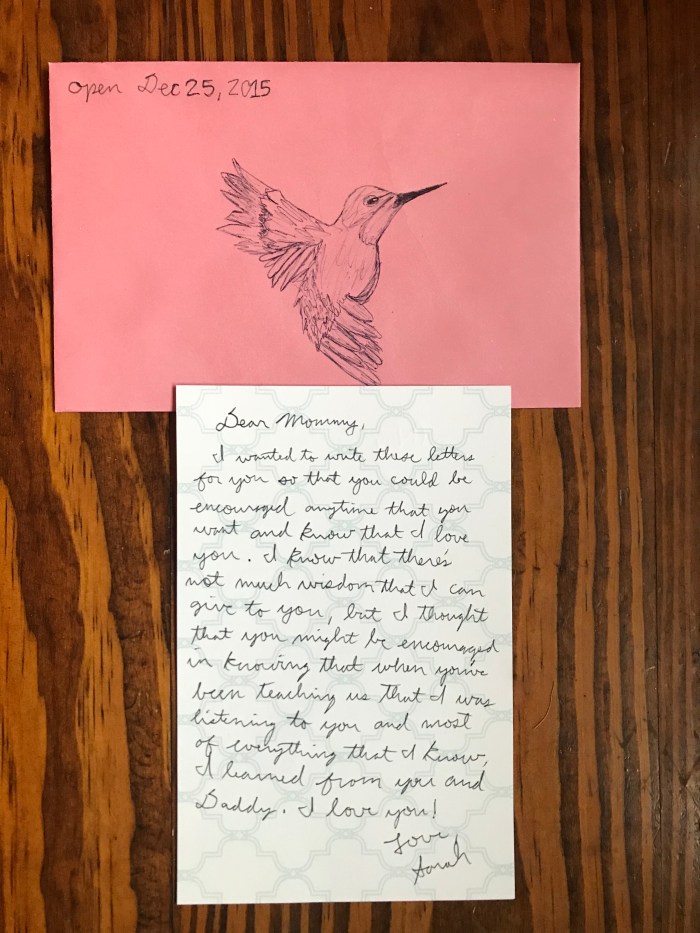 open Dec 25, 2015
Dear Mommy,
I wanted to write these letters
for you so that you could be
encouraged anytime that you
want and know that I love
you. I know that there's
not much wisdom that I can
give to you, but I thought
that you might be encouraged
in knowing that when you've
been teaching us that I was
listening to you and most
of everything that I know,
I learned from you and
Daddy. I love you!
Love,
Sarah